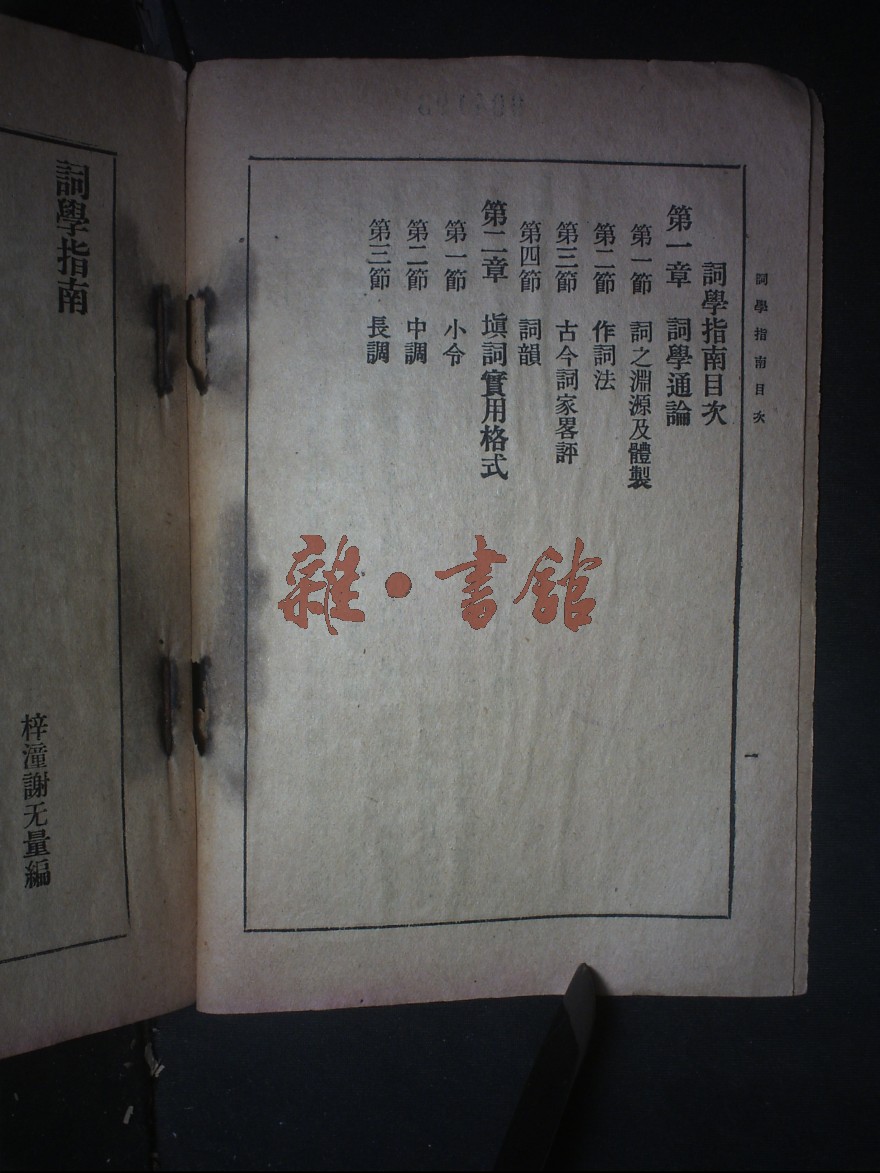 詞學指南目次
一
詞學指南目次
第一章 詞學通論
第一節 詞之淵源及體製
第二節 作詞法
第三節 古今詞家畧評
第四節 詞韻
第二章 塡詞實用格式
第一節 小令
第二節 中調
第三節 長調
雜·書館
詞學指南
梓潼謝无量編